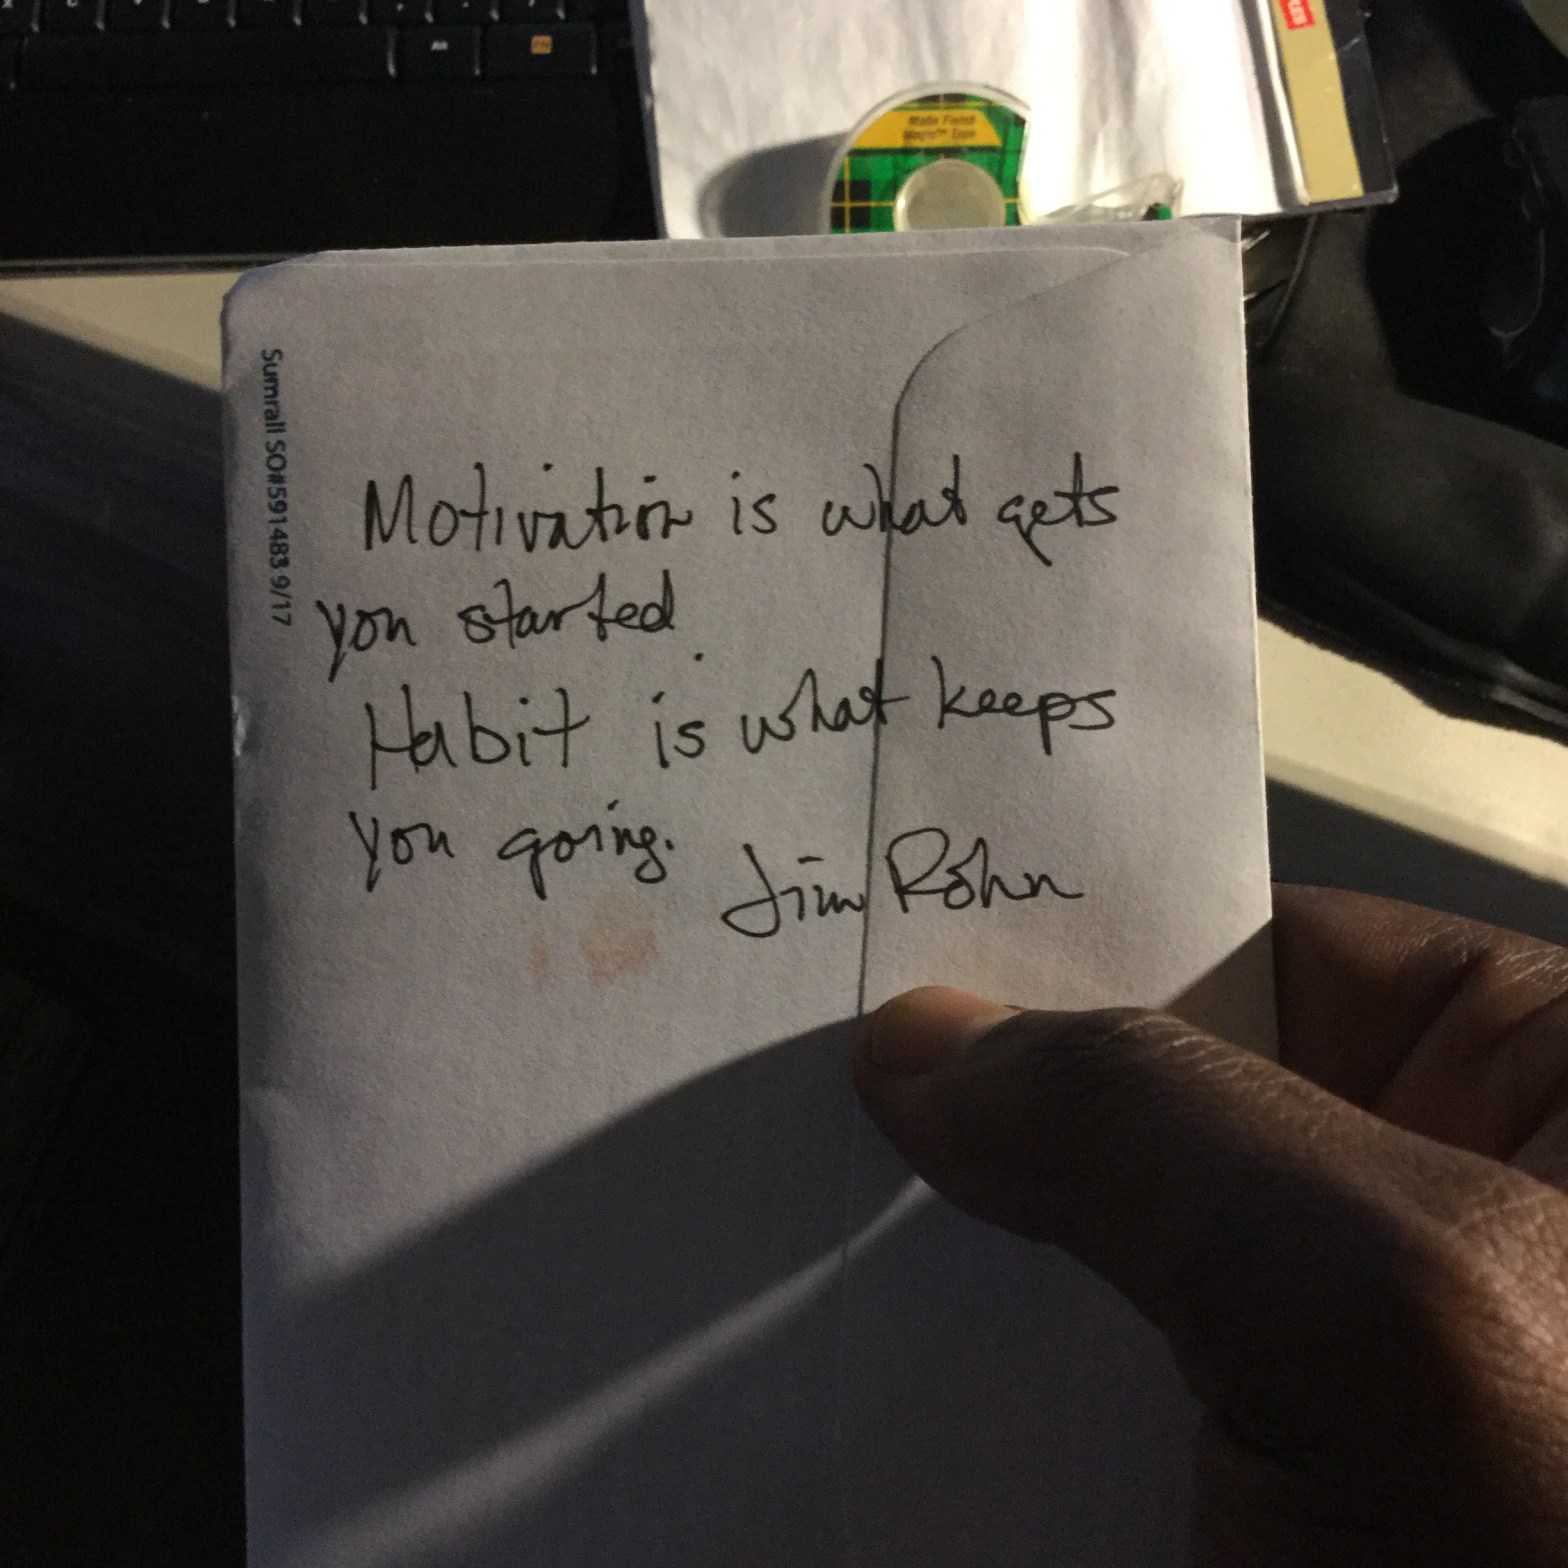 Made From
Sumrall SO#591483 9/17
Motivation is what gets
you started.
Habit is what keeps
you going.
Jim Rohn